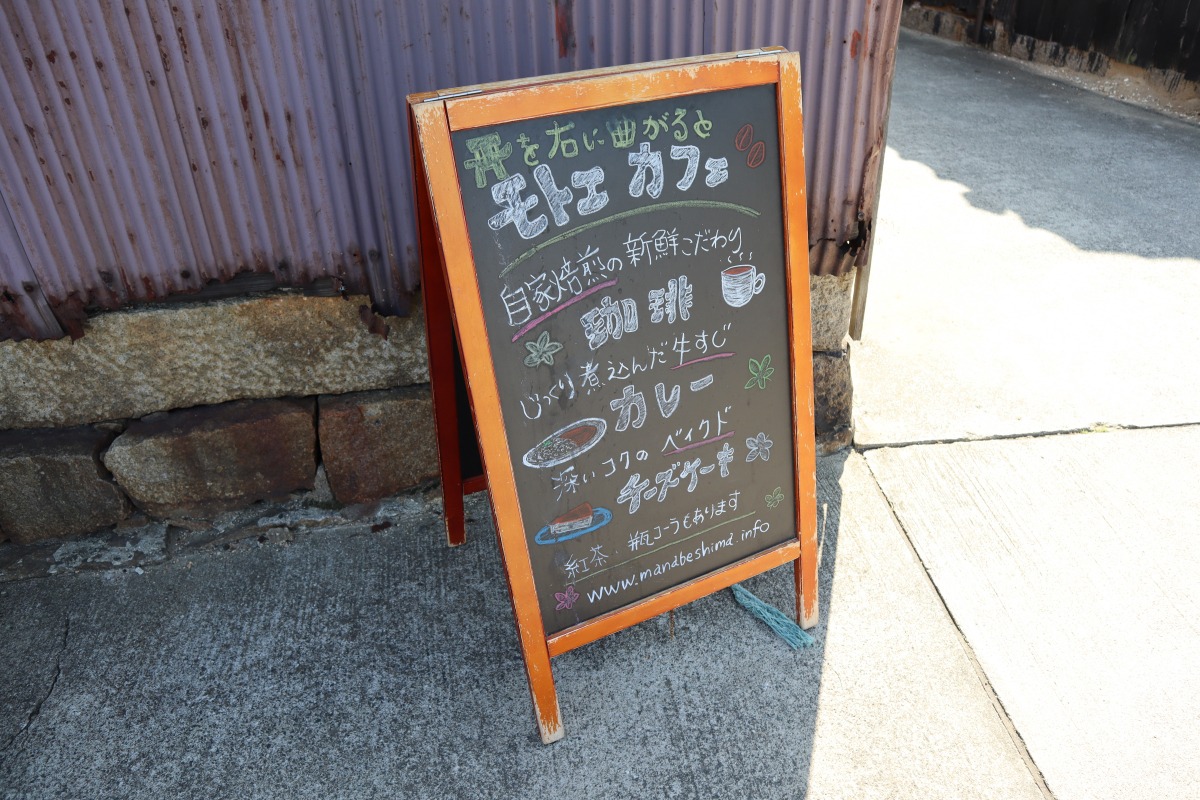 を右に曲がると
モトエ カフェ
自家焙煎の新鮮こだわり
珈琲
じっくり煮込んだ牛すじ
カレー
深いコクの ベイクド
チーズケーキ
紅茶・瓶コーラもあります
www.manabeshima.info